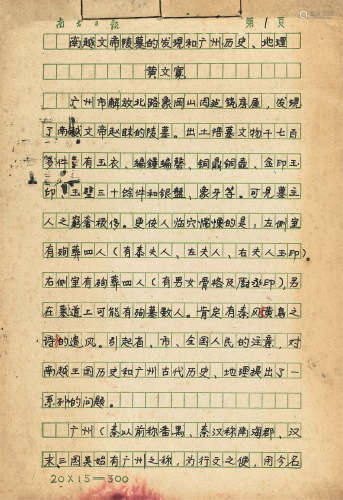 南方日报 第1页
南越文帝陵墓的发现和广州历史、地理
黄文宽
广州市解放北路象岗山因建筑房屋，发现
了南越文帝赵眜的陵墓。出土陪葬文物千七百
多件，有玉衣、编钟编磬、铜鼎铜壶、金印玉
印、玉璧三十馀件和银盤、象牙等。可见墓主
人之穷奢极侈。更使人临穴惴慄的是，左侧室
有殉葬四人（有泰夫人、左夫人、右夫人玉印）
右侧室有殉葬四人（有男女骨格及厨丞印），另
在墓道上可能有殉墓数人。肯定有秦风黄鸟之
诗的遗风。引起省、市、全国人民的注意，对
南越王国历史和广州古代历史、地理提出了一
系列的问题。
广州（秦以前称番禺、秦汉称南海郡、汉
末三国吴始有广州之称，为行文之便，用今名
20×15＝300